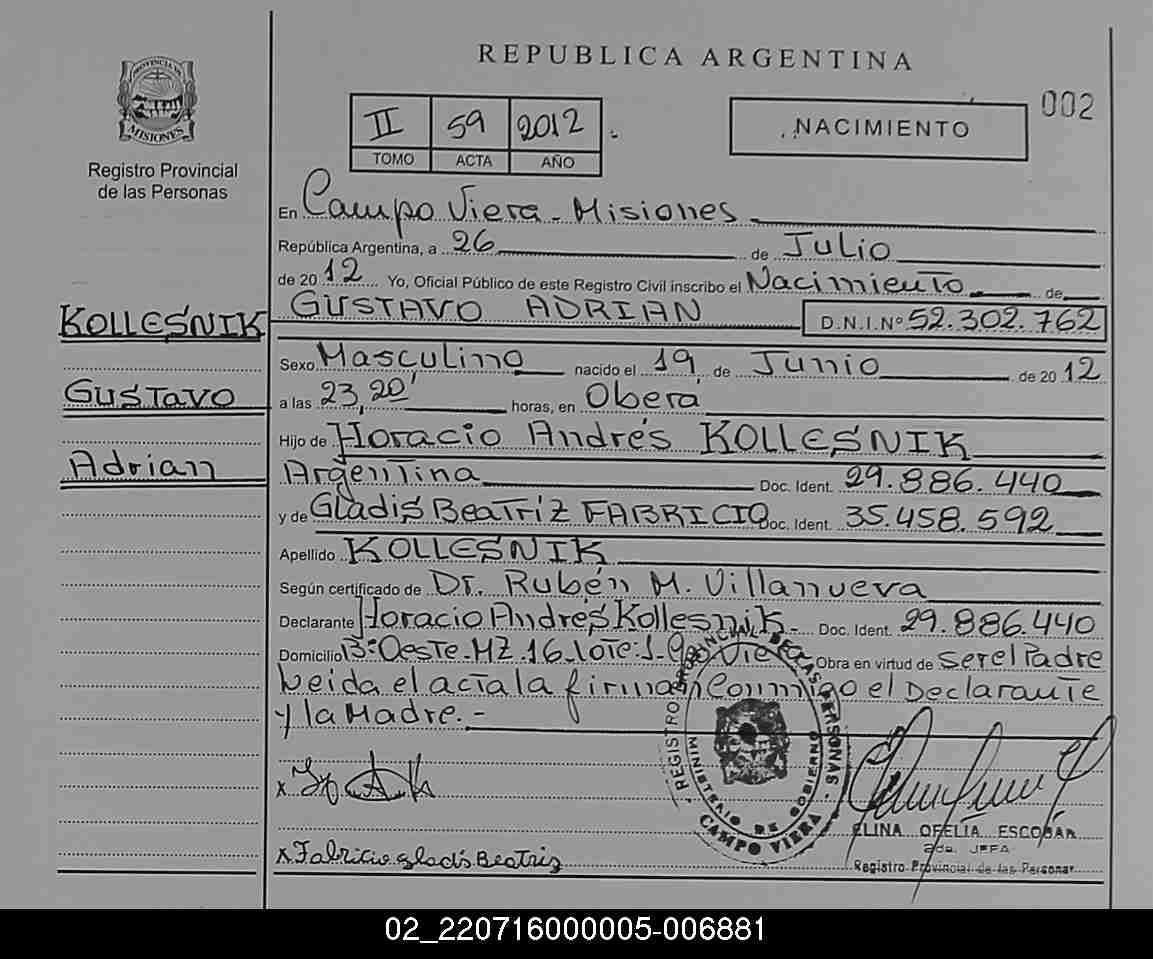 REPUBLICA ARGENTINA
PROVINCIA DE
MISIONES
Registro Provincial
de las Personas
II 59 2012
TOMO ACTA AÑO
NACIMIENTO
002
En Campo Viera - Misiones
República Argentina, a 26 de Julio
de 2012 Yo, Oficial Público de este Registro Civil inscribo el Nacimiento de
KOLLESNIK GUSTAVO ADRIAN D.N.I.Nº 52.302.762
Sexo Masculino nacido el 19 de Junio de 2012
Gustavo
a las 23,20' horas, en Oberá
Hijo de Horacio Andrés KOLLESNIK
Adrian
Argentina Doc. Ident. 29.886.440
y de Gladis Beatríz FABRICIO Doc. Ident. 35.458.592
Apellido KOLLESNIK
Según certificado de Dr. Rubén M. Villanueva
Declarante Horacio Andrés Kollesnik - Doc. Ident. 29.886.440
Domicilio Bº Oeste - MZ. 16 - Lote: 1 - Obra en virtud de ser el Padre
Leida el acta la firman conmigo el Declarante
y la Madre.-
REGISTRO PROVINCIAL DE LAS PERSONAS
MINISTERIO DE GOBIERNO
CAMPO VIERA
x
x Fabricio gladis Beatriz
ELINA OFELIA ESCOBAR
2da. JEFA
Registro Provincial de las Personas
02_220716000005-006881